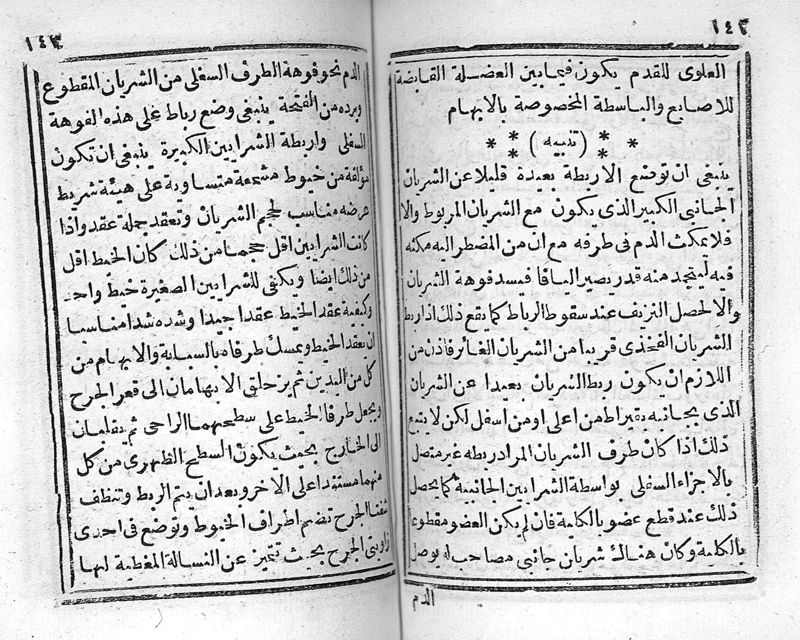 ١٤٢
العلوى للقدم يكون فيما بين العضلة القابضة
للاصابع والباسطة المخصوصة بالابهام
* * (تنبيه) * *
ينبغى ان توضع الاربطة بعيدة قليلا عن الشريان
الجانبى الكبير الذى يكون مع الشريان المربوط والا
فلا يمكث الدم فى طرفه مع ان من المضطر اليه مكثه
فيه ليتجمد منه قدر يصير اليافا فيسد فوهة الشريان
والا لحصل النزيف عند سقوط الرباط كما يقع ذلك اذا ربط
الشريان الفخذى قريبا من الشريان الغائر فاذن من
اللازم ان يكون ربط الشريان بعيدا عن الشريان
الذى بجانبه بقيراط من اعلى او من اسفل لكن لا ينبع
ذلك اذا كان طرف الشريان المراد ربطه غير متصل
بالاجزاء السفلى بواسطة الشرايين الجانبية كما يحصل
ذلك عند قطع عضو بالكلية فان لم يكن العضو مقطوعا
بالكلية وكان هناك شريان جانبى مصاحب له يوصل
الدم
١٤٣
الدم نحو فوهة الطرف السفلى من الشريان المقطوع
ويرده من الفتحة ينبغى وضع رباط على هذه الفوهة
السفلى واربطة الشرايين الكبيرة ينبغى ان تكون
مؤلفة من خيوط مشمعة متساوية على هيئة شريط
عرضه مناسب لحجم الشريان وتعقد جملة عقد واذا
كانت الشرايين اقل حجما من ذلك كان الخيط اقل
من ذلك ايضا ويكفى للشرايين الصغيرة خيط واحد
وكيفية عقد الخيط عقدا جيدا وشده شدا مناسبا
ان يعقد الخيط ويمسك طرفاه بالسبابة والابهام من
كل من اليدين ثم يزحلق الابهامان الى قعر الجرح
ويجعل طرفا الخيط على سطحهما الراحى ثم يقلبان
الى الخارج بحيث يكون السطح الظهرى من كل
منهما مستندا على الاخر وبعد ان يتم الربط وتنظف
شفتا الجرح تضم اطراف الخيوط وتوضع فى احدى
زاويتى الجرح بحيث تتميز عن النسالة المغطية لها